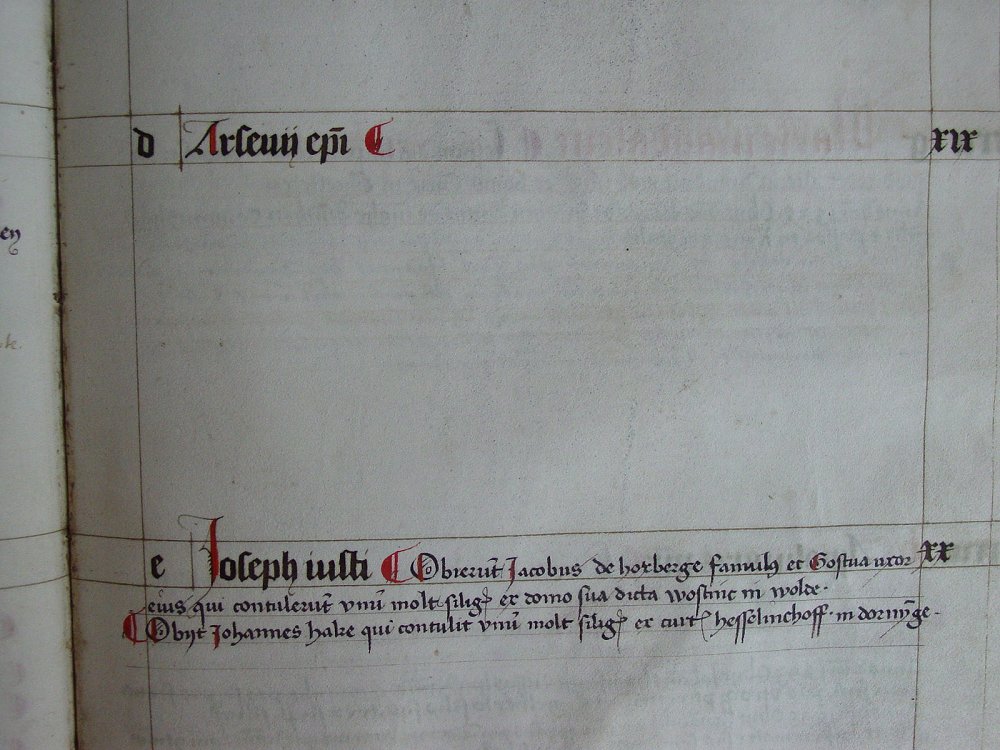 d Arsenij ep̄i ¶ xix
e Joseph iusti ¶ Obierūt Jacobus de hoxberge famulꝰ et Gostua uxor xx
eius qui contulerūt vnū molt siligꝭ ex domo sua dicta wostinc in wolde·
¶ Obijt Johannes hake qui contulit vnū molt siligꝭ ex curtꝭ hesselinchoff· in dornȳge·